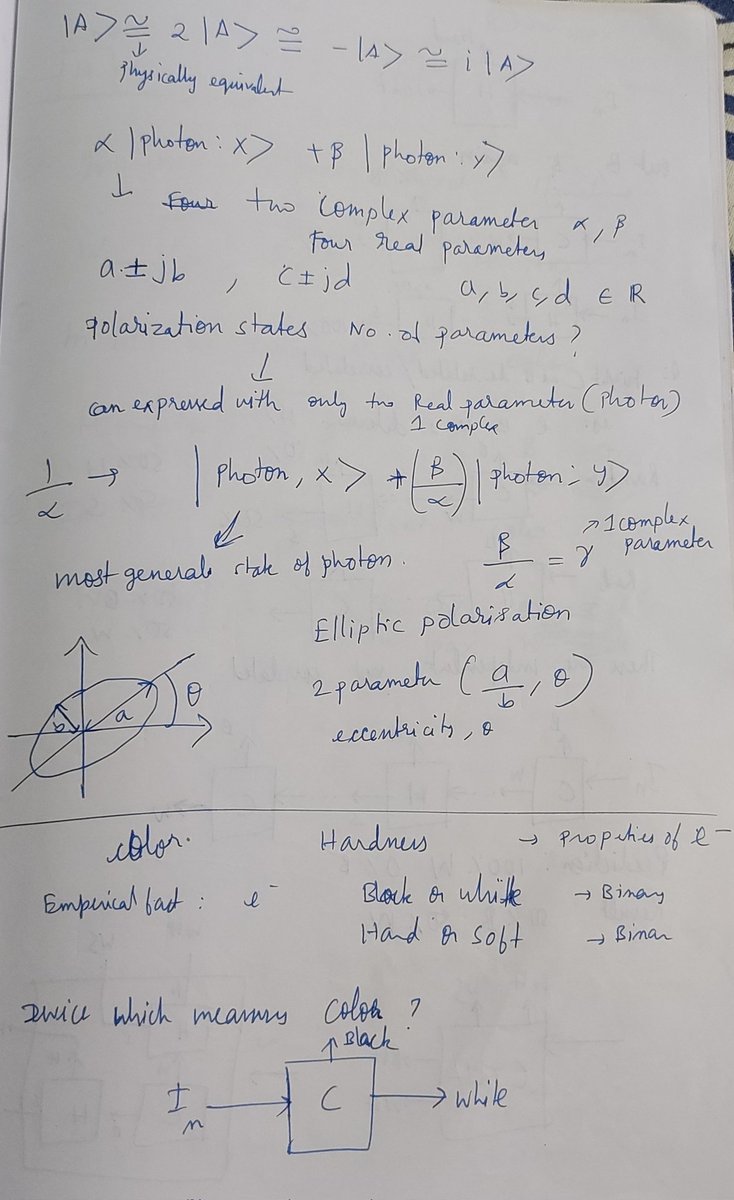 |A> ≅ 2 |A> ≅ -|A> ≅ i |A>
↓
Physically equivalent
α |photon: x> + β |photon: y>
↓ Four two Complex parameter α, β
Four real parameters
a ± jb , c ± jd a, b, c, d ∈ ℝ
polarization states No. of parameters ?
↓
can expressed with only two Real parameter (Photon)
1 complex
1/α → | photon, x> + (β/α) | photon: y>
most general state of photon. β/α = γ → 1 complex parameter
Elliptic polarisation
2 parameter (a/b, θ)
eccentricity, θ
b a θ
color. Hardness → Properties of e⁻
Emperical fact : e⁻ Black or white → Binary
Hard or soft → Binar
Device which measures Color ?
↑ Black
In → C → white